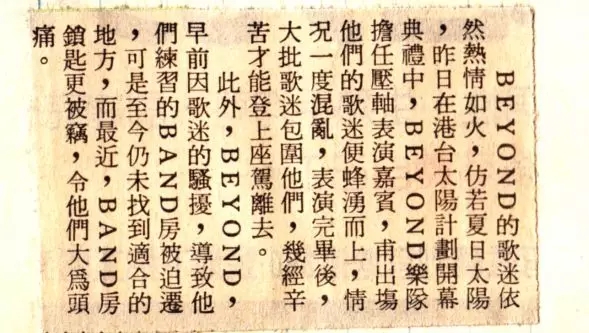 BEYOND的歌迷依
然熱情如火，仿若夏日太陽
，昨日在港台太陽計劃開幕
典禮中，BEYOND樂隊
擔任壓軸表演嘉賓，甫出塲
他們的歌迷便蜂湧而上，情
況一度混亂，表演完畢後，
大批歌迷包圍他們，幾經辛
苦才能登上座駕離去。
此外，BEYOND，
早前因歌迷的騷擾，導致他
們練習的BAND房被迫遷
，可是至今仍未找到適合的
地方，而最近，BAND房
鎖匙更被竊，令他們大爲頭
痛。